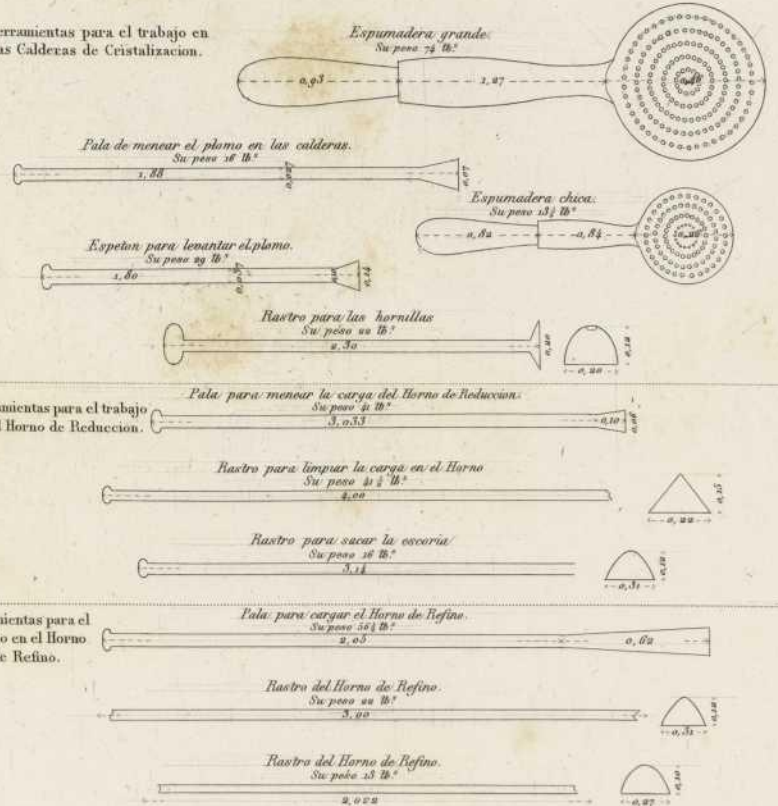 erramientas para el trabajo en
as Calderas de Cristalizacion.
Espumadera grande.
Su peso 74 lb.s
0,93
1,27
Pala de menear el plomo en las calderas.
Su peso 16 lb.s
1,88
0,027
0,07
Espumadera chica.
Su peso 13½ lb.s
0,82
0,84
Espeton para levantar el plomo.
Su peso 29 lb.s
1,80
0,037
0,14
Rastro para las hornillas
Su peso 22 lb.s
2,30
0,20
0,12
0,20
amientas para el trabajo
l Horno de Reduccion.
Pala para menear la carga del Horno de Reduccion.
Su peso 41 lb.s
3,033
0,10
0,06
Rastro para limpiar la carga en el Horno
Su peso 41½ lb.s
4,00
0,15
0,22
Rastro para sacar la escoria
Su peso 16 lb.s
3,14
0,12
0,31
mientas para el
o en el Horno
e Refino.
Pala para cargar el Horno de Refino.
Su peso 56½ lb.s
2,05
0,62
Rastro del Horno de Refino.
Su peso 22 lb.s
3,00
0,31
Rastro del Horno de Refino.
Su peso 13 lb.s
2,022
0,10
0,27